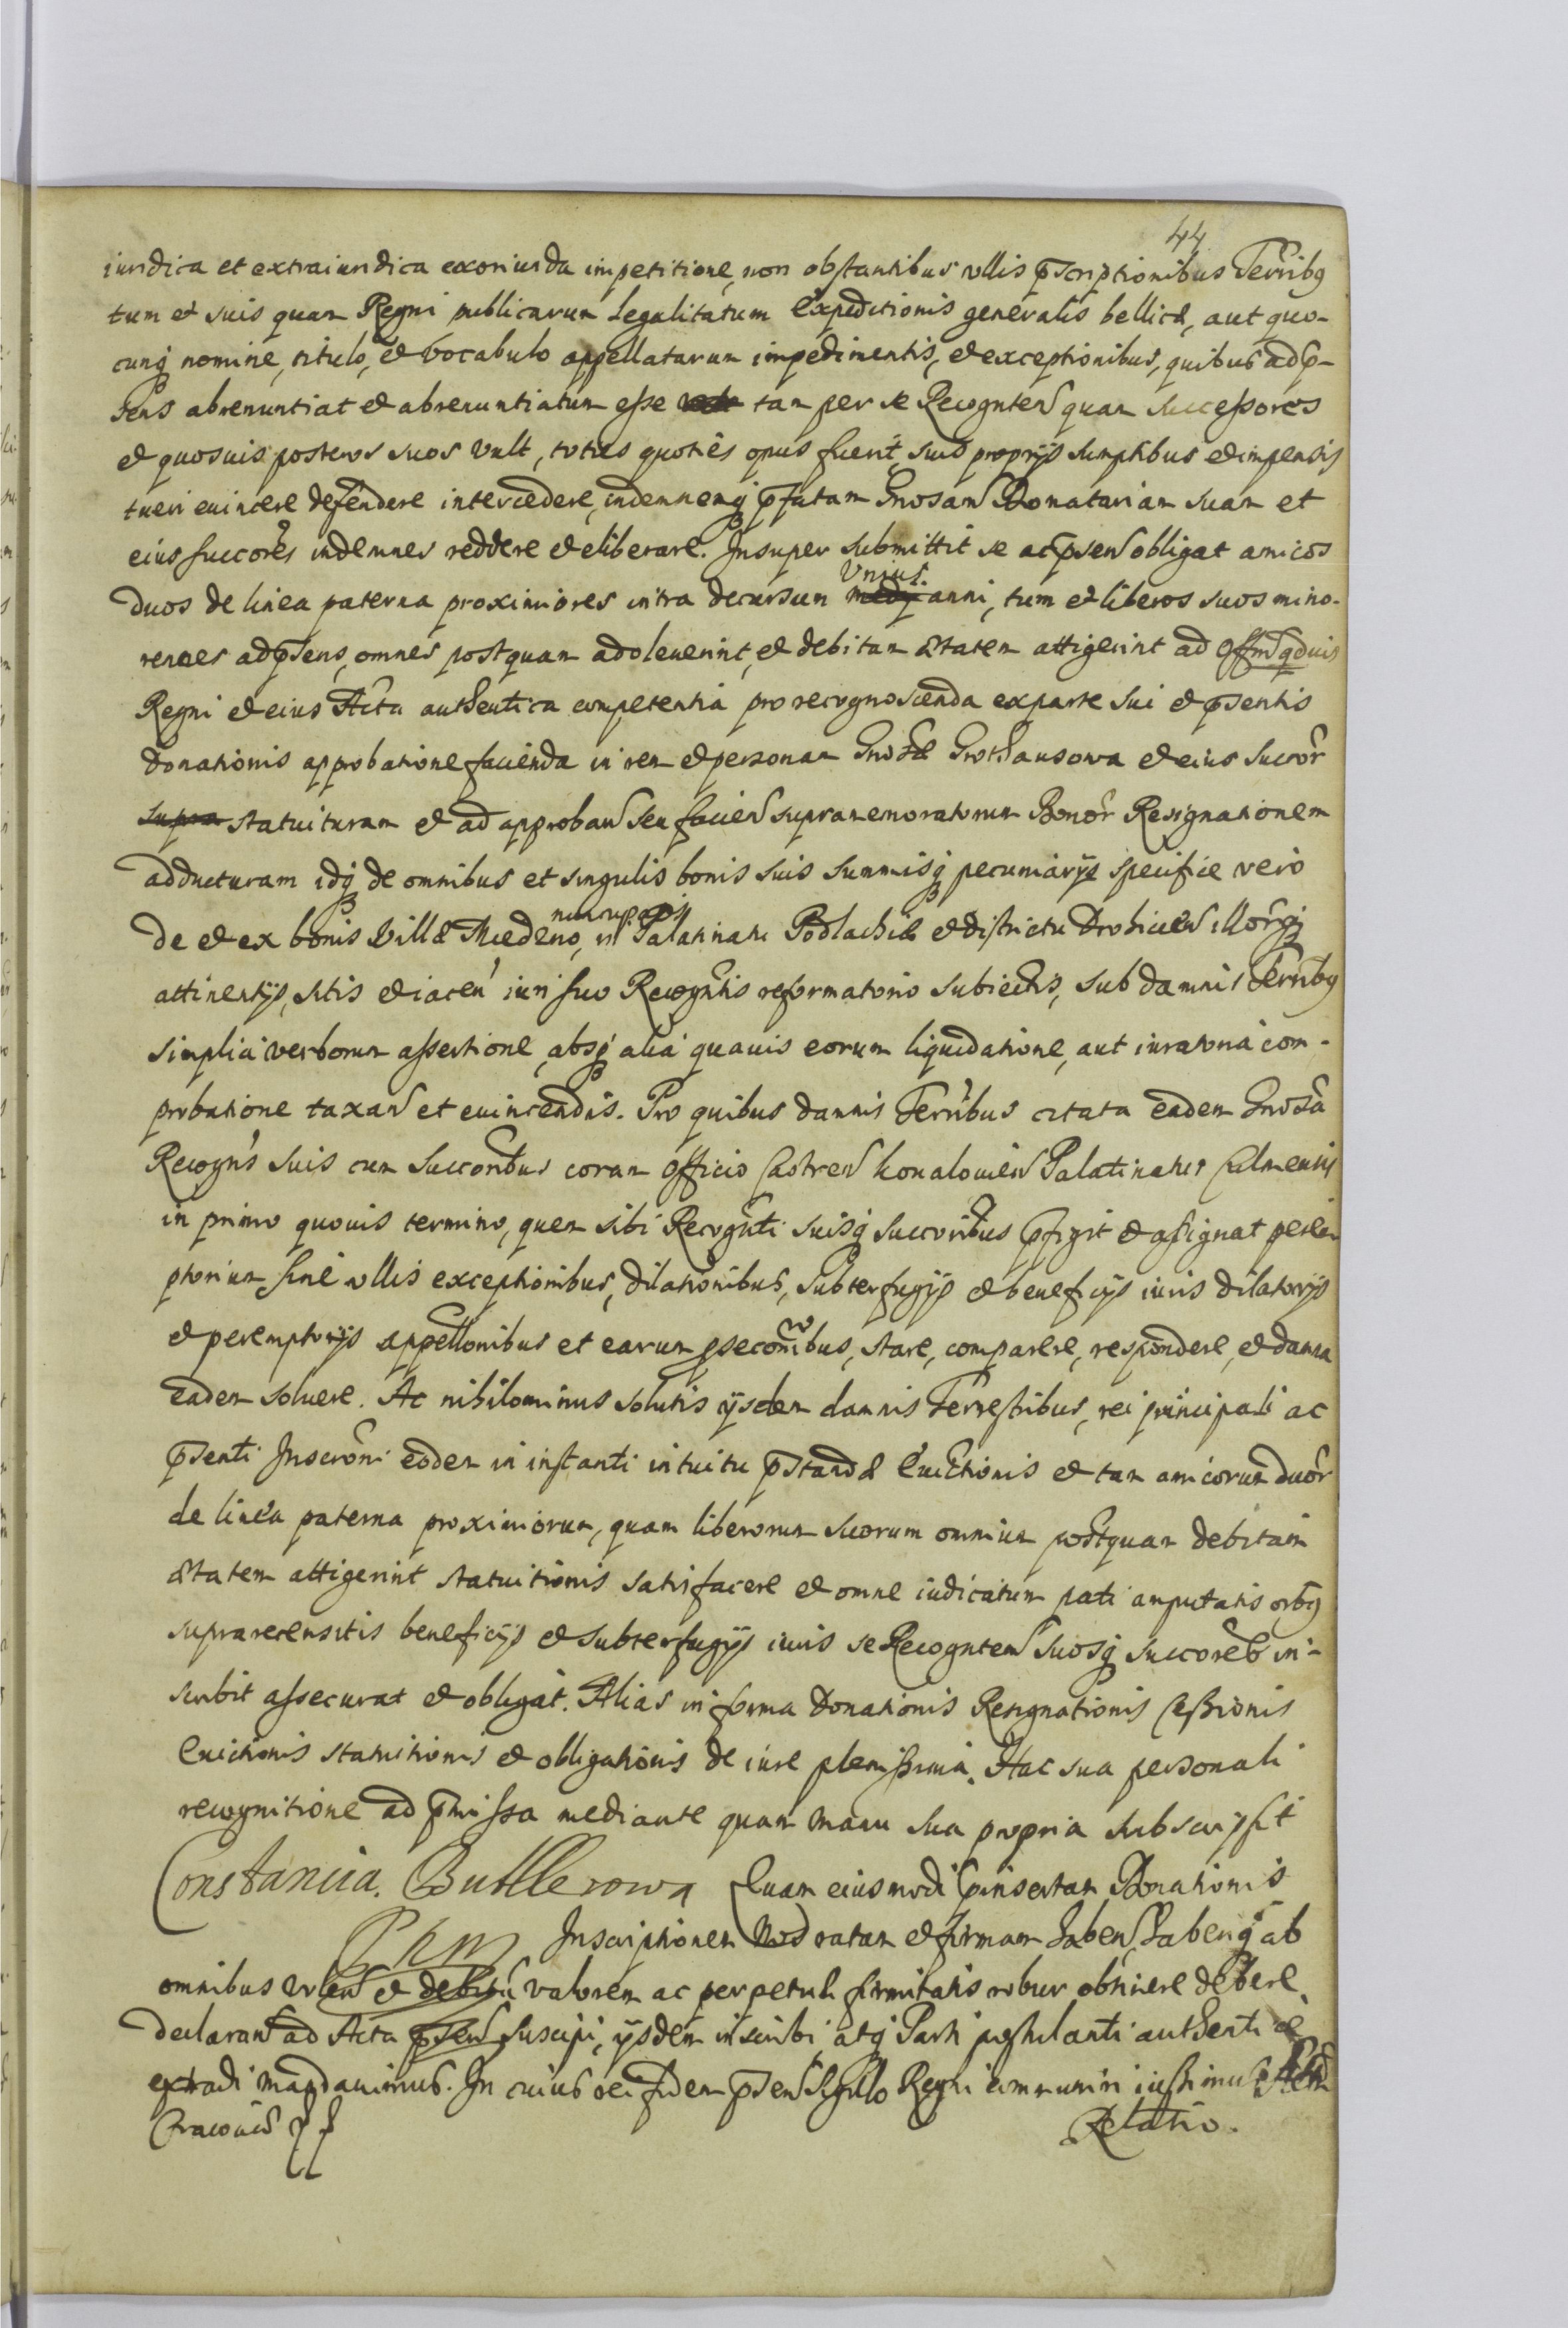 44
iuridica et extraiuridica exoriunda impetitione, non obstantibus vllis pscriptionibus Terribq
tum et suis quam Regni publicarum Legalitatum Expeditionis generalis bellicæ, aut quo-
cunq nomine, titulo, et vocabulo appellatarum impedimentis, et exceptionibus, quibus ad p-
sens abrenuntiat et abrenuntiatum esse tam per se Recognten quam successores
et quosuis posteros suos vult, toties quoties opus fuerit, suis proprijs sumptibus et impensis
tueri euincere defendere intercedere, indemnemq pfatam Gnosam Donatariam suam et
eius succores indemnes reddere et eliberare. Insuper submittit se ac psen obligat amicos
duos de linea paterna proximiores intra decursum medij Vnius anni, tum et liberos suos mino-
rennes ad psens, omnes postquam adoleuerint, et debitam ætatem attigerint ad Offm quis
Regni et eius Acta authentica competentia pro recognoscenda ex parte sui et psentis
donationis approbatione facienda in rem et personam Gnosæ Grothausowa et eius succor
supra statuituram et ad approban seu facien supramemoratorum Bonor Resignationem
adducturam idq de omnibus et singulis bonis suis summisq pecuniarijs specifice vero
de et ex bonis Villæ Miedzno nuncupatis, in Palatinatu Podlachiæ et districtu Drohicen illorq
attinentijs, sitis et iacen iuri suo Recogntis reformatorio subiectis, sub damnis Terribq
simplici verborum assertione, absq alia quauis eorum liquidatione, aut iuratoria com-
probatione taxan et euincendis. Pro quibus damnis Terribus citata eadem Gnosa
Recogns suis cum succoribus coram Officio Castren Kowalouien Palatinatus Culmensis
in primo quouis termino, quem sibi Recognti suisq succoribus pfigit et assignat perem
ptorium sine vllis exceptionibus, dilationibus, subterfugijs et beneficijs iuris dilatorijs
et peremptorijs appellonibus et earum psecuonibus, stare, comparere, respondere, et damna
eadem soluere. Ac nihilominus solutis ijsdem damnis Terrestribus, rei principali ac
psenti Inscroni eodem in instanti intuitu pstandæ Euictionis et tam amicorum duor
de linea paterna proximiorum, quam liberorum suorum omnium postquam debitam
ætatem attigerint statuitionis satisfacere et omne iudicatum pati amputatis orbq
suprarecensitis beneficijs et subterfugijs iuris se Recognten suosq succores in-
scribit assecurat et obligat. Alias in forma Donationis Resignationis Cessionis
Euictionis statuitionis et obligationis de iure plenissima. Hac sua personali
recognitione ad pmissa mediante quam manu sua propria subscripsit
Constancia. Buttlerowa Quam eiusmodi pinsertam Donationis
Inscriptionem Nos ratam et firmam haben, haberiq ab
omnibus volen et debitu valorem ac perpetuæ firmitatis robur obtinere debere
declaran ad Acta psen suscipi, ijsdem inscribi, atq Parti postulanti authentice
extradi mandauimus. In cuius rei fidem psen Sigillo Regni communiri iussimus.
Cracouiæ
Relatio.